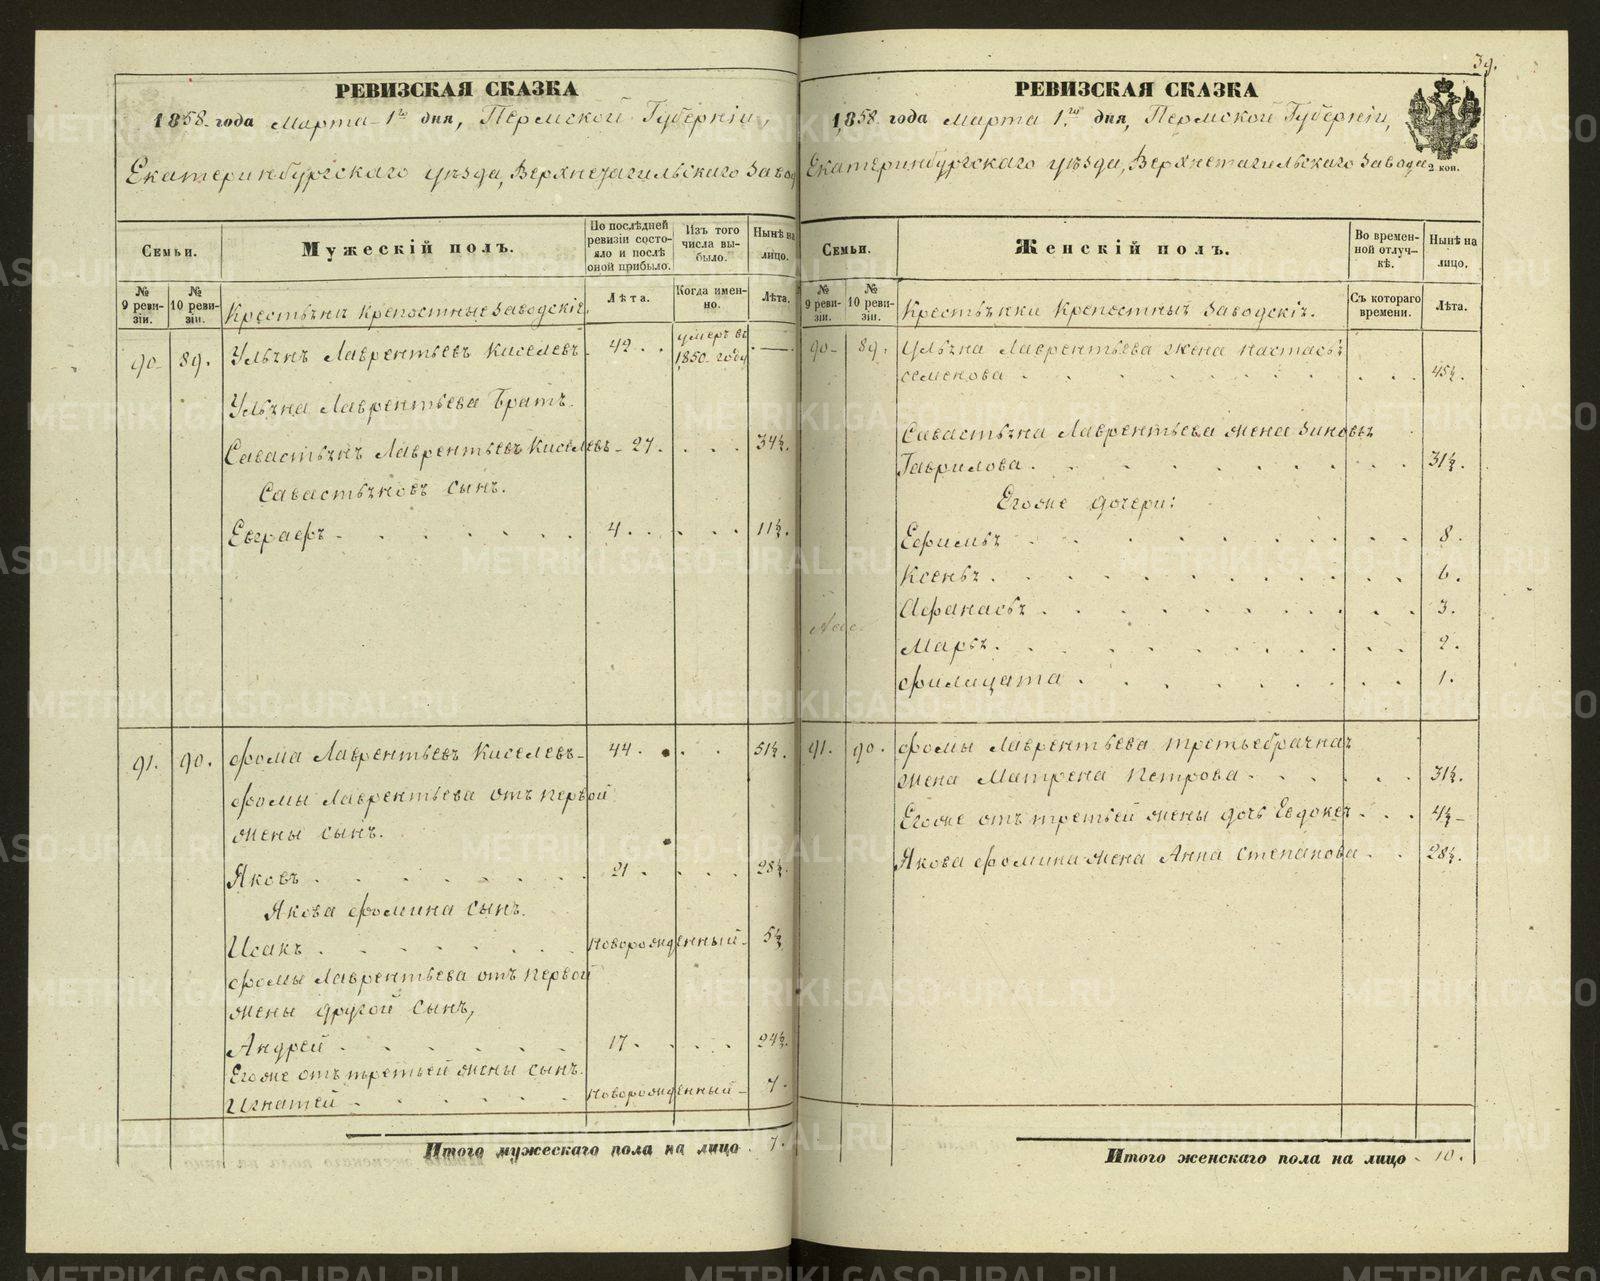 39.
РЕВИЗСКАЯ СКАЗКА
1858 года Марта 1го дня, Пермской Губерніи,
Екатеринбургскаго уѣзда, Верхнетагильскаго Завода
Семьи.
Мужескій полъ.
По послѣдней ревизіи состояло и послѣ оной прибыло.
Изъ того числа выбыло.
Нынѣ на лицо.
№ 9 ревизіи.
№ 10 ревизіи.
Крестьяне крепостные Заводскіе.
Лѣта.
Когда именно.
Лѣта.
90 89. Ульянъ Лаврентьевъ Киселевъ 42. умеръ въ 1850 году —
Ульяна Лаврентьева Братъ.
Савастьянъ Лаврентьевъ Киселевъ 27. 34½.
Савастьяновъ сынъ.
Евграфъ 4. 11½.
91. 90. Фома Лаврентьевъ Киселевъ 44. 51½.
Фомы Лаврентьева отъ первой
жены сынъ.
Яковъ 21. 28½.
Якова Фомина сынъ.
Исакъ новорожденный 5½
Фомы Лаврентьева отъ первой
жены другой сынъ,
Андрей 17. 24½.
Егоже отъ третьей жены сынъ.
Игнатей новорожденный 7.
Итого мужескаго пола на лицо 7.
РЕВИЗСКАЯ СКАЗКА
1858 года Марта 1го дня, Пермской Губерніи,
Екатеринбургскаго уѣзда, Верхнетагильскаго Завода
2 коп.
Семьи.
Женскій полъ.
Во временной отлучкѣ.
Нынѣ на лицо.
№ 9 ревизіи.
№ 10 ревизіи.
Крестьянки Крепостныя Заводскія.
Съ котораго времени.
Лѣта.
90 89. Ульяна Лаврентьева жена Настасья
Семенова 45½.
Савастьяна Лаврентьева жена Зиновья
Гаврилова 31½.
Егоже дочери:
Ефимья 8.
Ксенья 6.
Афанасья 3.
Марья 2.
Филицата 1.
91. 90. Фомы Лаврентьева третьебрачная
жена Матрена Петрова 31½.
Егоже отъ третьей жены дочь Евдокея 4½
Якова Фомина жена Анна Степанова 28½.
Итого женскаго пола на лицо 10.
METRIKI.GASO-URAL.RU